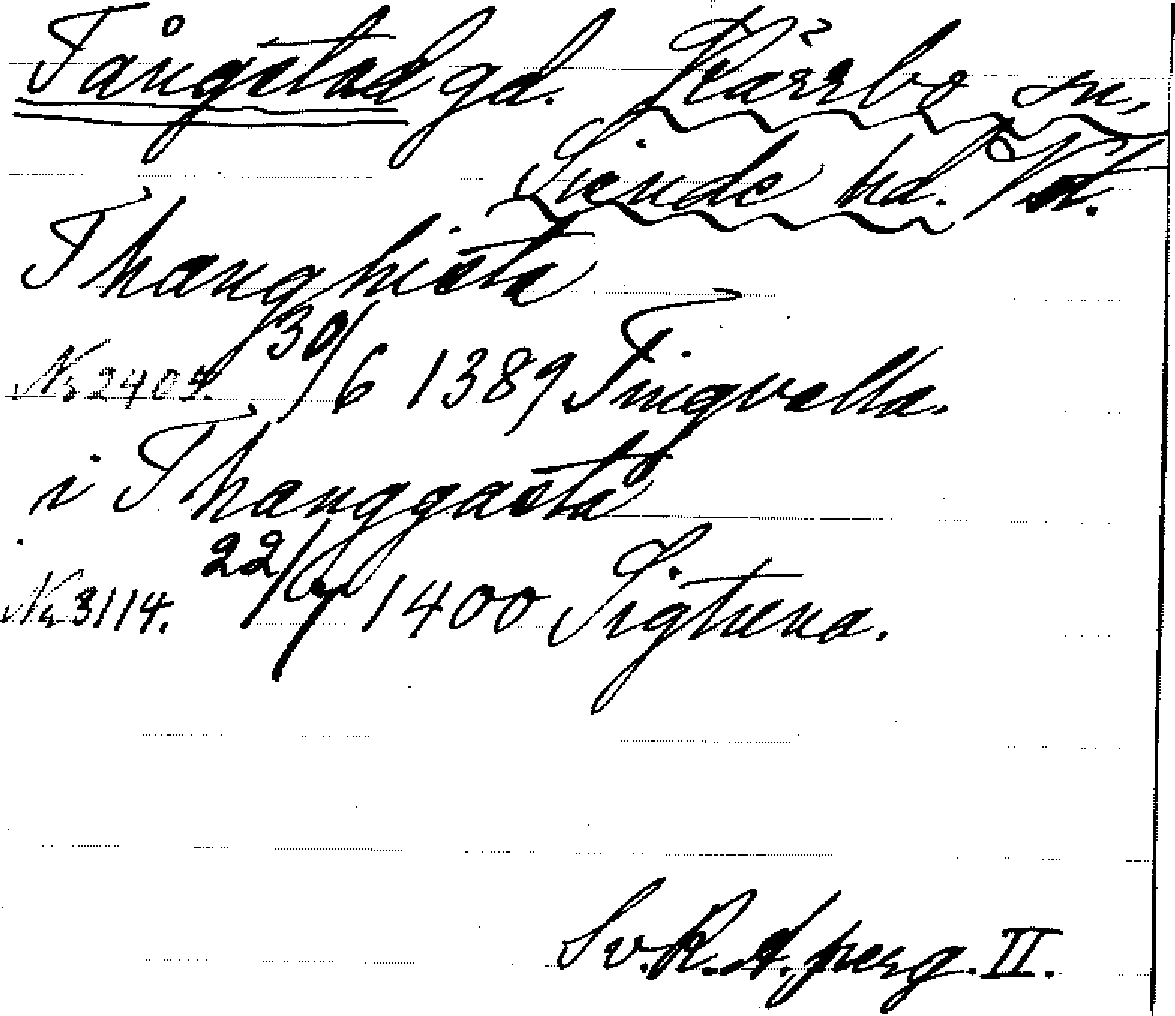 Tångstad gd. Kärrbo sn,
Siende hd. Vst.
Thanghista
No 2405. 30/6 1389 Tingvalla.
i Thanggasta
No 3114. 22/ 1400 Sigtuna.
Sv. R. A. perg. II.